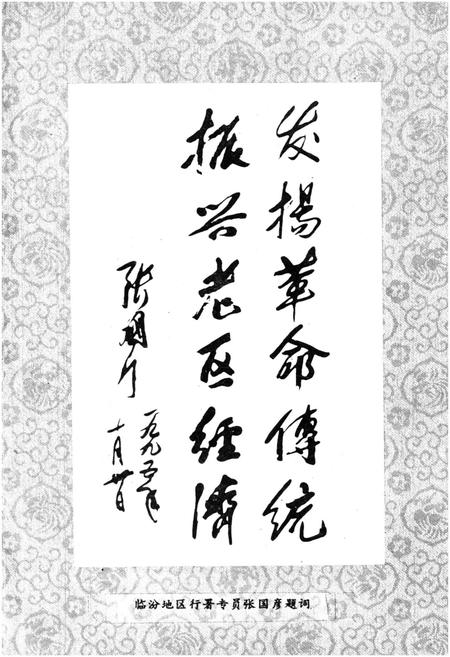 发揚革命傳统
振兴老区经濟
张国彦
一九九五年
十月廿日
临汾地区行署专员张国彦题词